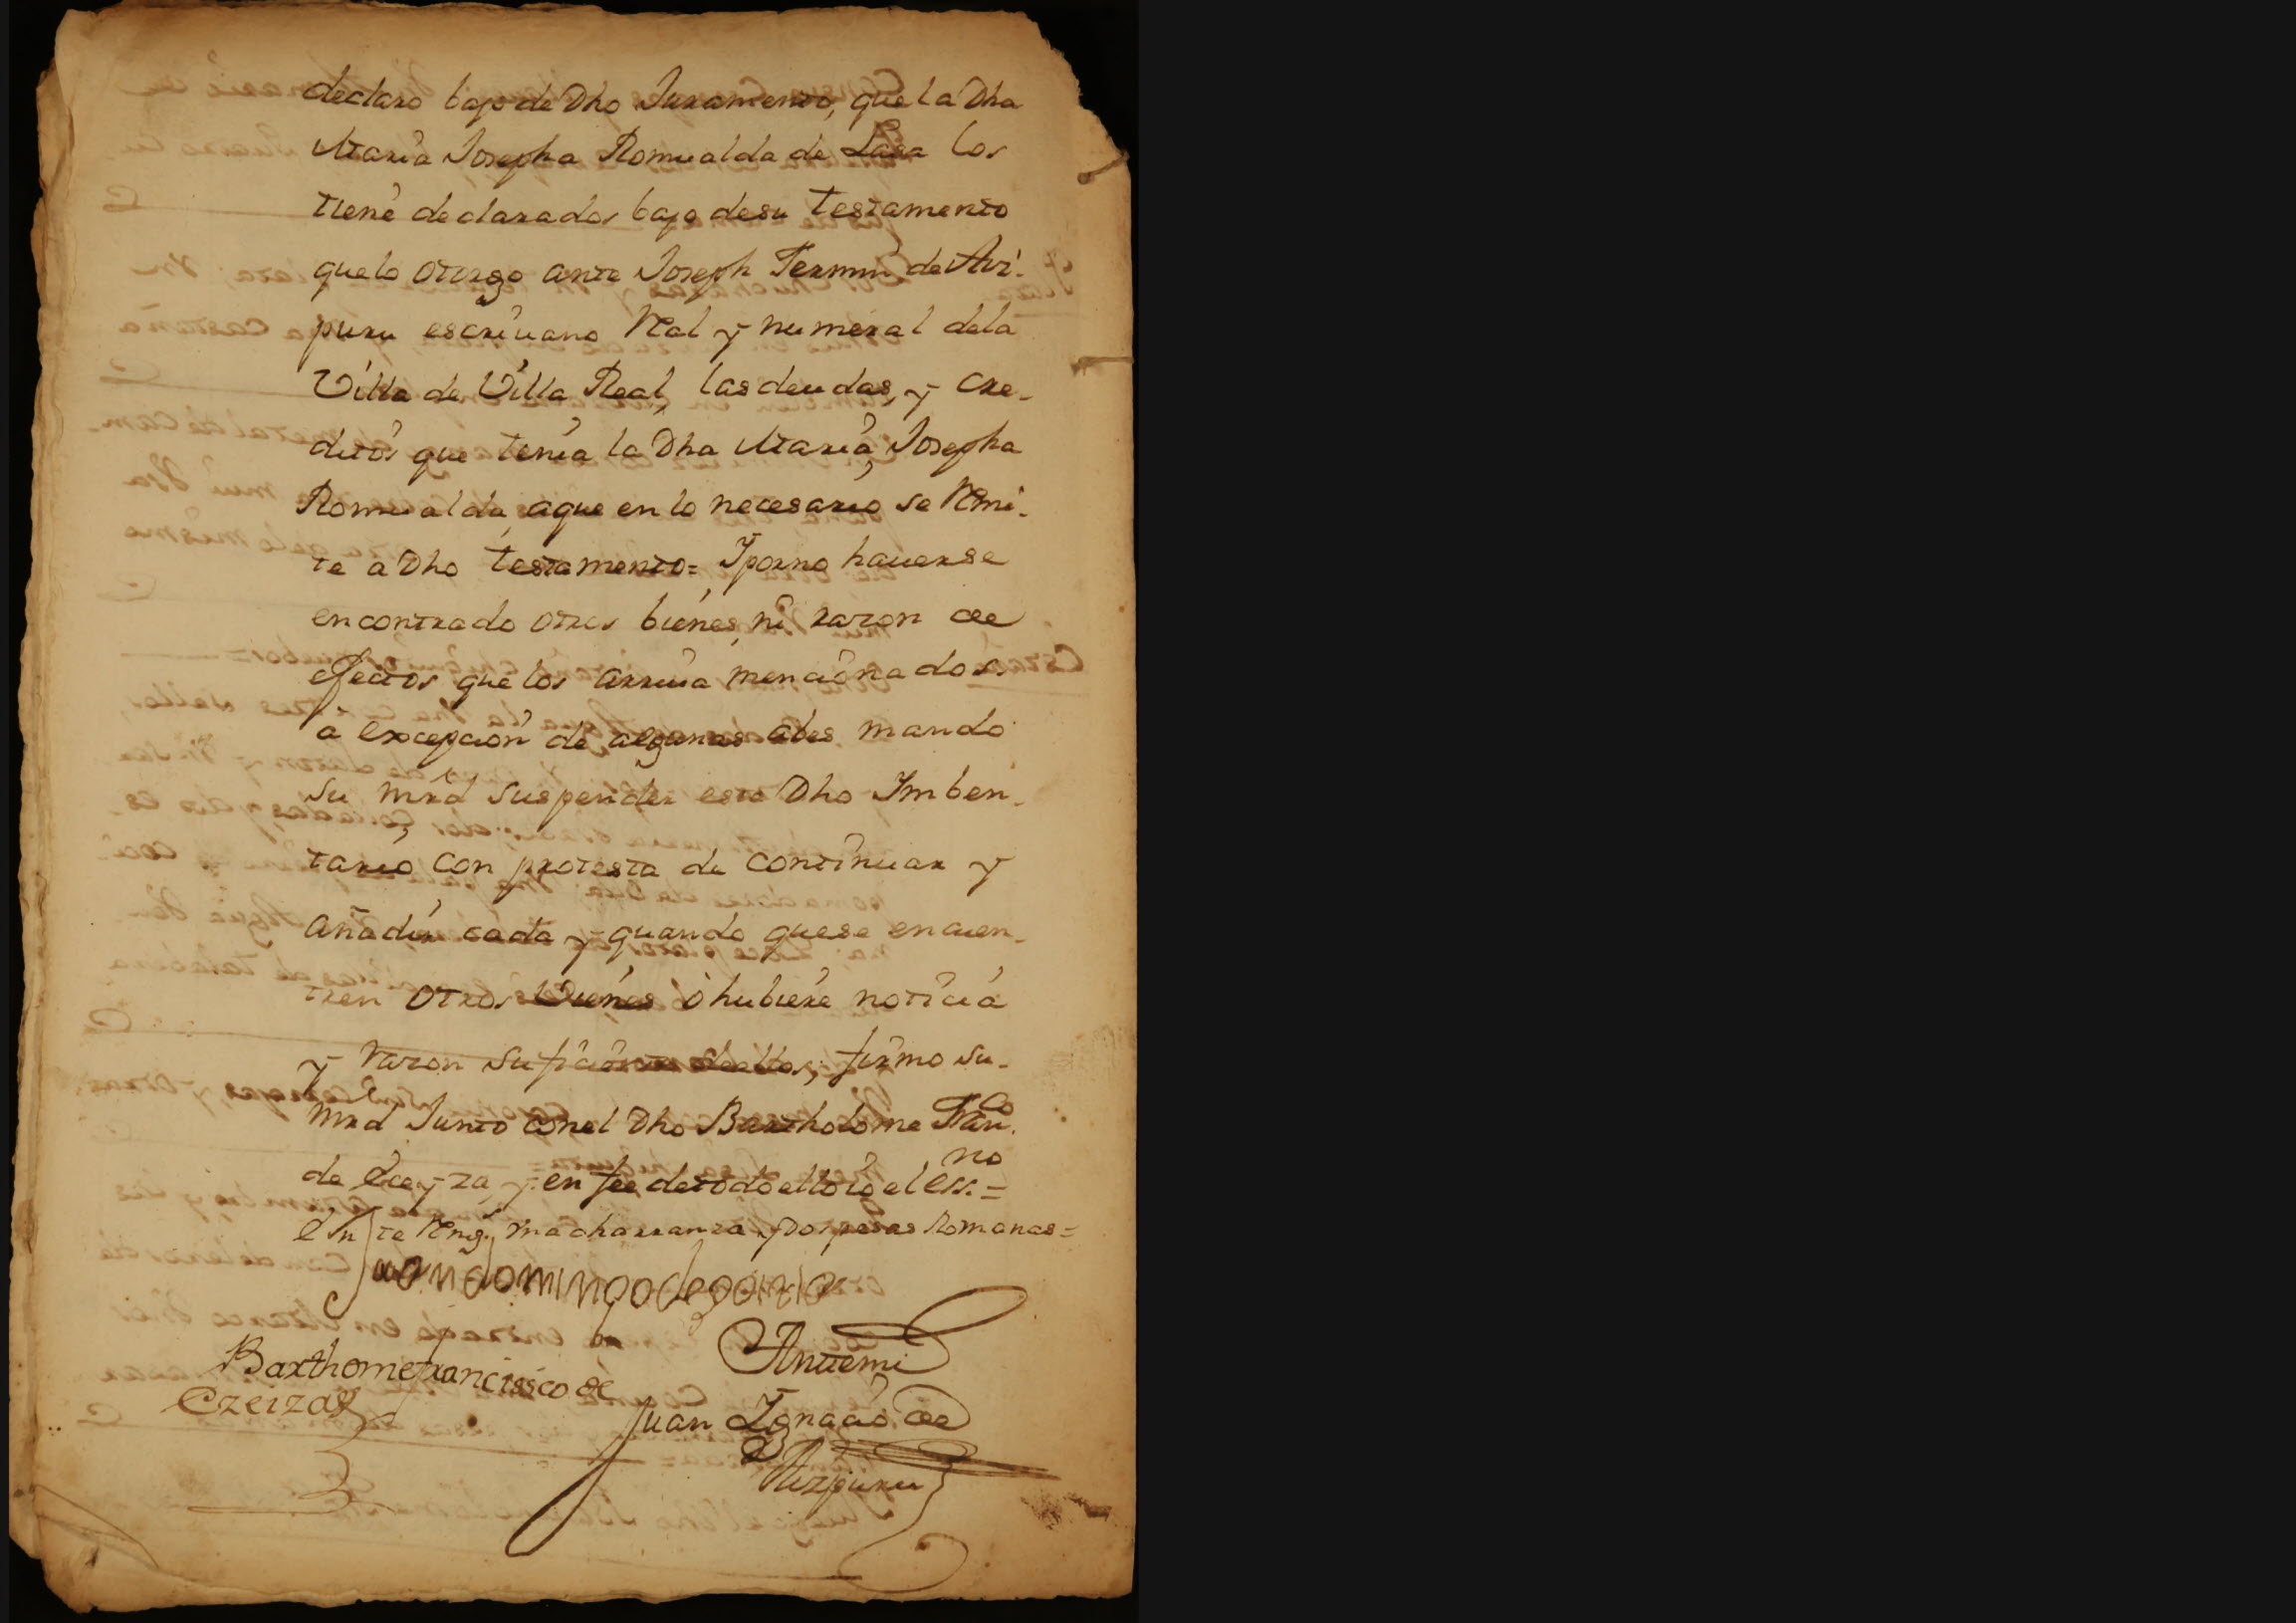 declaro bajo de Dho Juramento, que la Dha
Maria Josepha Romualda de Lasa los
tiene declarados bajo de su testamento
que lo otorgo ante Joseph Fermin de Aiz-
puru escriuano Real y numeral dela
Villa de Villa Real, las deudas, y cre-
ditos que tenia la Dha Maria Josepha
Romualda, aque en lo necesario se Remi-
te a Dho testamento= Y por no hauerse
encontrado otros bienes, ni razon de
efectos que los arriua mencionados
a excepcion de algunas abes mando
su mrd suspender este Dho Imben-
tario, con protesta de continuar y
añadir cada y quando que se encuen-
tren otros bienes ó hubiere noticia
y razon suficiente de ellos, firmo su
mrd Junto con el Dho Bartholome Franco
de Eceyza, y en fee de todo ello io el essno=
machaxranza y dos pesas Romanas=
Juan domingo de
Barthome francissco de
Ezeiza
Antemi
Juan Ignacio de
Aizpuru